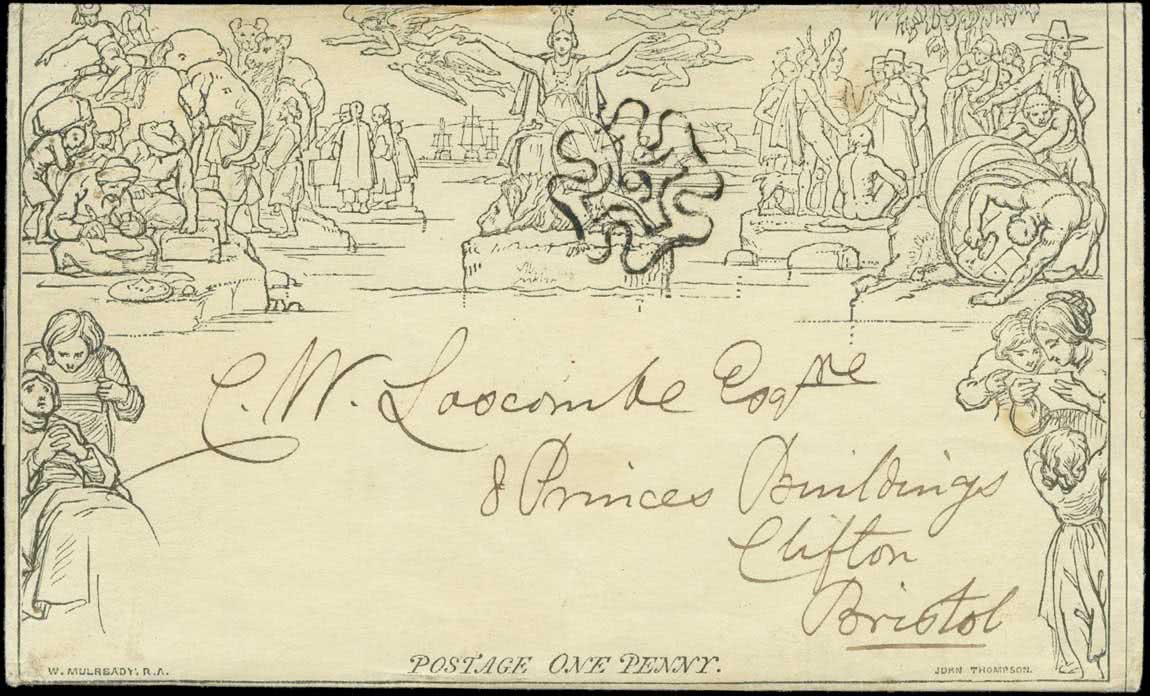 C. W. Loscombe Esqre
8 Princes Buildings
Clifton
Bristol
W. MULREADY. R.A.
POSTAGE ONE PENNY.
JOHN THOMPSON.